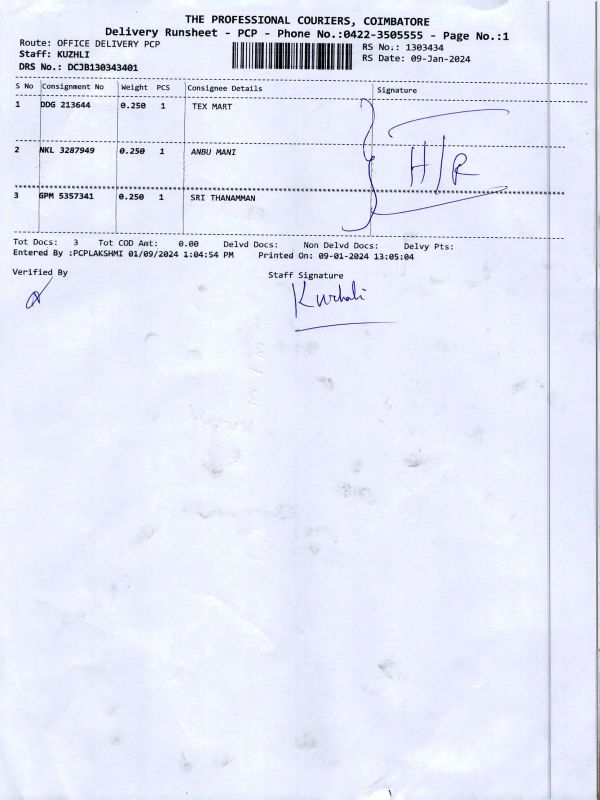 THE PROFESSIONAL COURIERS, COIMBATORE
Delivery Runsheet - PCP - Phone No.:0422-3505555 - Page No.:1
Route: OFFICE DELIVERY PCP
Staff: KUZHLI
DRS No.: DCJB130343401
RS No.: 1303434
RS Date: 09-Jan-2024
S No Consignment No Weight PCS Consignee Details Signature
1 DDG 213644 0.250 1 TEX MART
2 NKL 3287949 0.250 1 ANBU MANI
H/R
3 GPM 5357341 0.250 1 SRI THANAMMAN
Tot Docs: 3 Tot COD Amt: 0.00 Delvd Docs: Non Delvd Docs: Delvy Pts:
Entered By :PCPLAKSHMI 01/09/2024 1:04:54 PM Printed On: 09-01-2024 13:05:04
Verified By
Staff Signature
Kuzhali